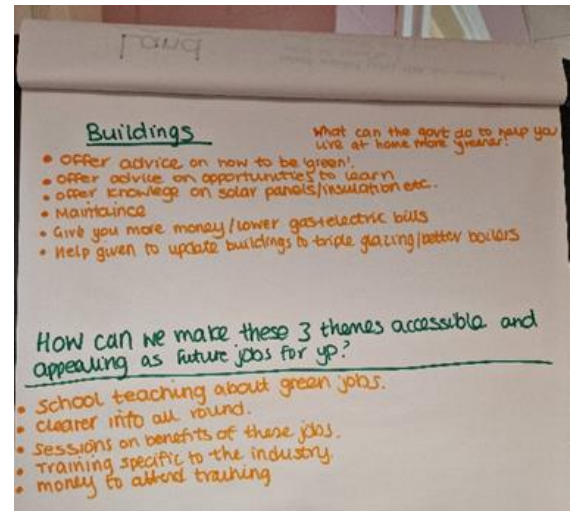 Land
Buildings
What can the govt do to help you
live at home more greener?
• offer advice on how to be 'green'.
• offer advice on opportunities to learn
• offer knowlege on solar panels/insulation etc.
• Maintaince
• Give you more money/lower gas+electric bills
• Help given to update buildings to triple glazing/better boilers
How can we make these 3 themes accessible and
appealing as future jobs for yp?
• School teaching about green jobs.
• clearer info all round.
• sessions on benefits of these jobs.
• Training specific to the industry.
• money to attend training